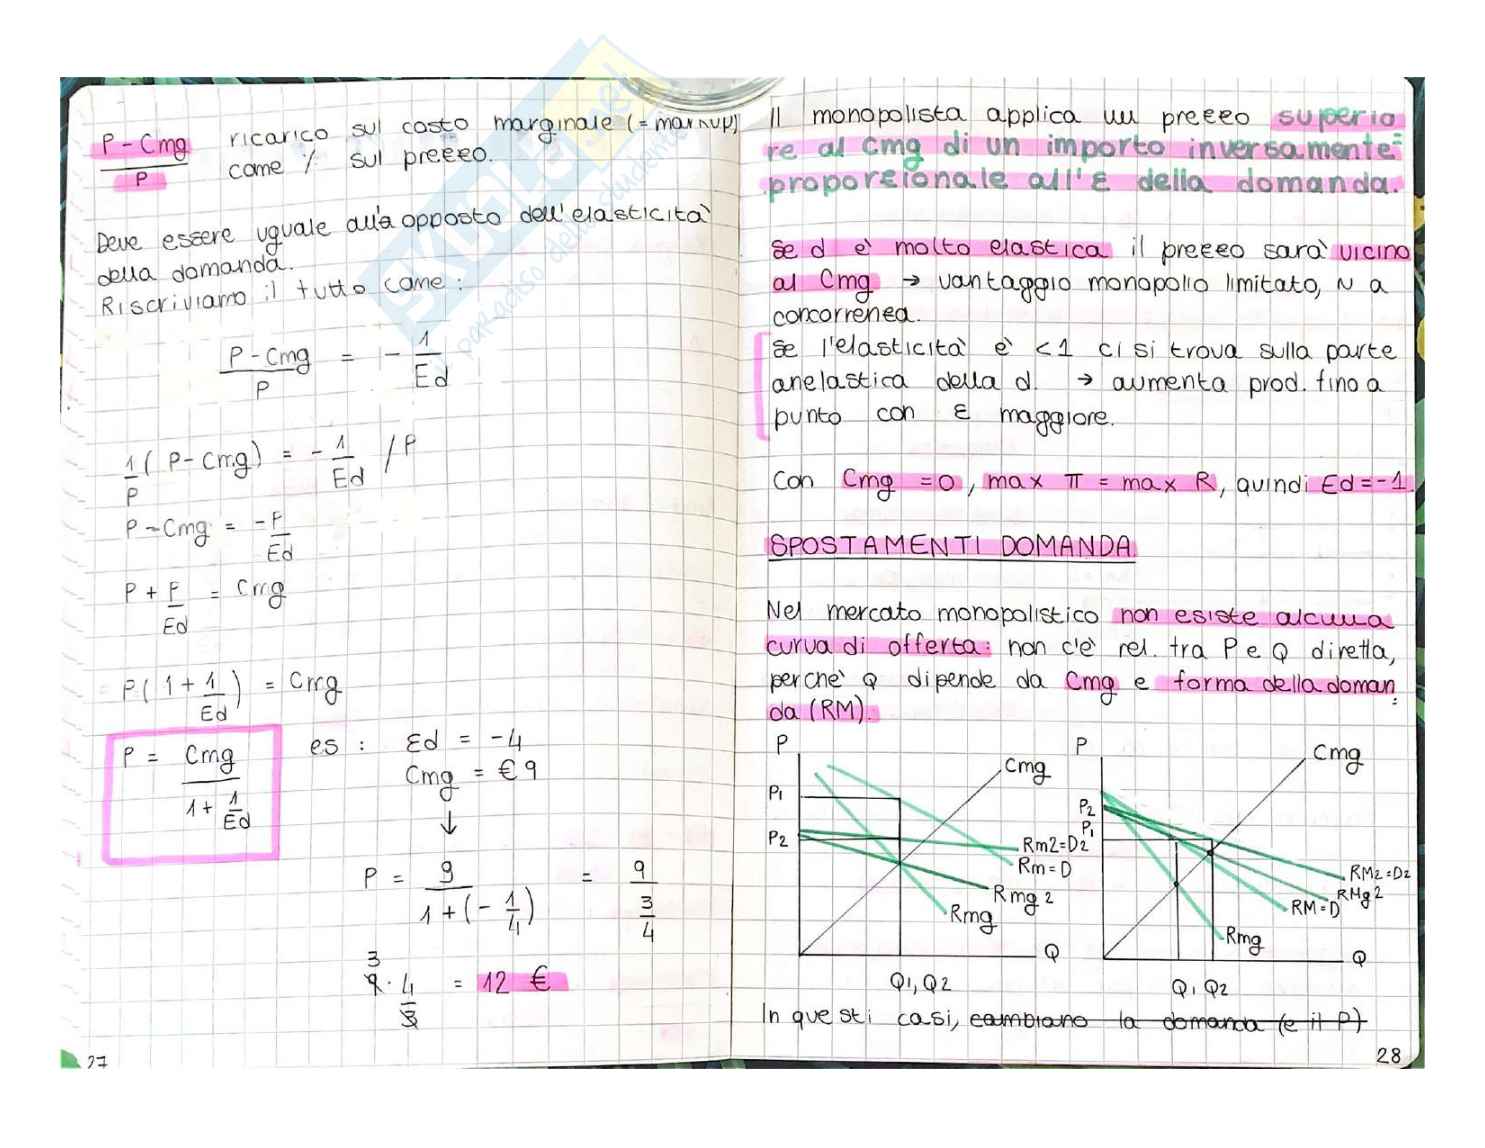 P - Cmg ricarico sul costo marginale (= marnup)
P come % sul prezzo.
Deve essere uguale all'a opposto dell'elasticità
della domanda.
Riscriviamo il tutto come:
P - Cmg = - 1
P Ed
1 ( P - Cmg) = - 1 / P
P Ed
P - Cmg = - P
Ed
P + P = Cmg
Ed
P ( 1 + 1 ) = Cmg
Ed
P = Cmg
1 + 1
Ed
es : Ed = -4
Cmg = € 9
↓
P = 9 = 9
1 + (- 1 ) 3
4 4
3
9 · 4 = 12 €
3
27
Il monopolista applica un prezzo superio
re al Cmg di un importo inversamente
proporzionale all'ε della domanda.
Se d è molto elastica il prezzo sarà vicino
al Cmg → vantaggio monopolio limitato, ~ a
concorrenza.
Se l'elasticità è < 1 ci si trova sulla parte
anelastica della d. → aumenta prod. fino a
punto con ε maggiore.
Con Cmg = 0, max π = max R, quindi Ed = -1.
SPOSTAMENTI DOMANDA
Nel mercato monopolistico non esiste alcuna
curva di offerta: non c'è rel. tra P e Q diretta,
perchè Q dipende da Cmg e forma della doman
da (RM).
P
Cmg
P1
P2
Rm2=D2
Rm=D
Rmg 2
Rmg
Q
Q1, Q2
P
Cmg
P2
P1
RM2=D2
RMg 2
RM=D
Rmg
Q
Q1 Q2
In questi casi, cambiano la domanda (e il P)
28
SKUOLA.net
paradiso dello studente